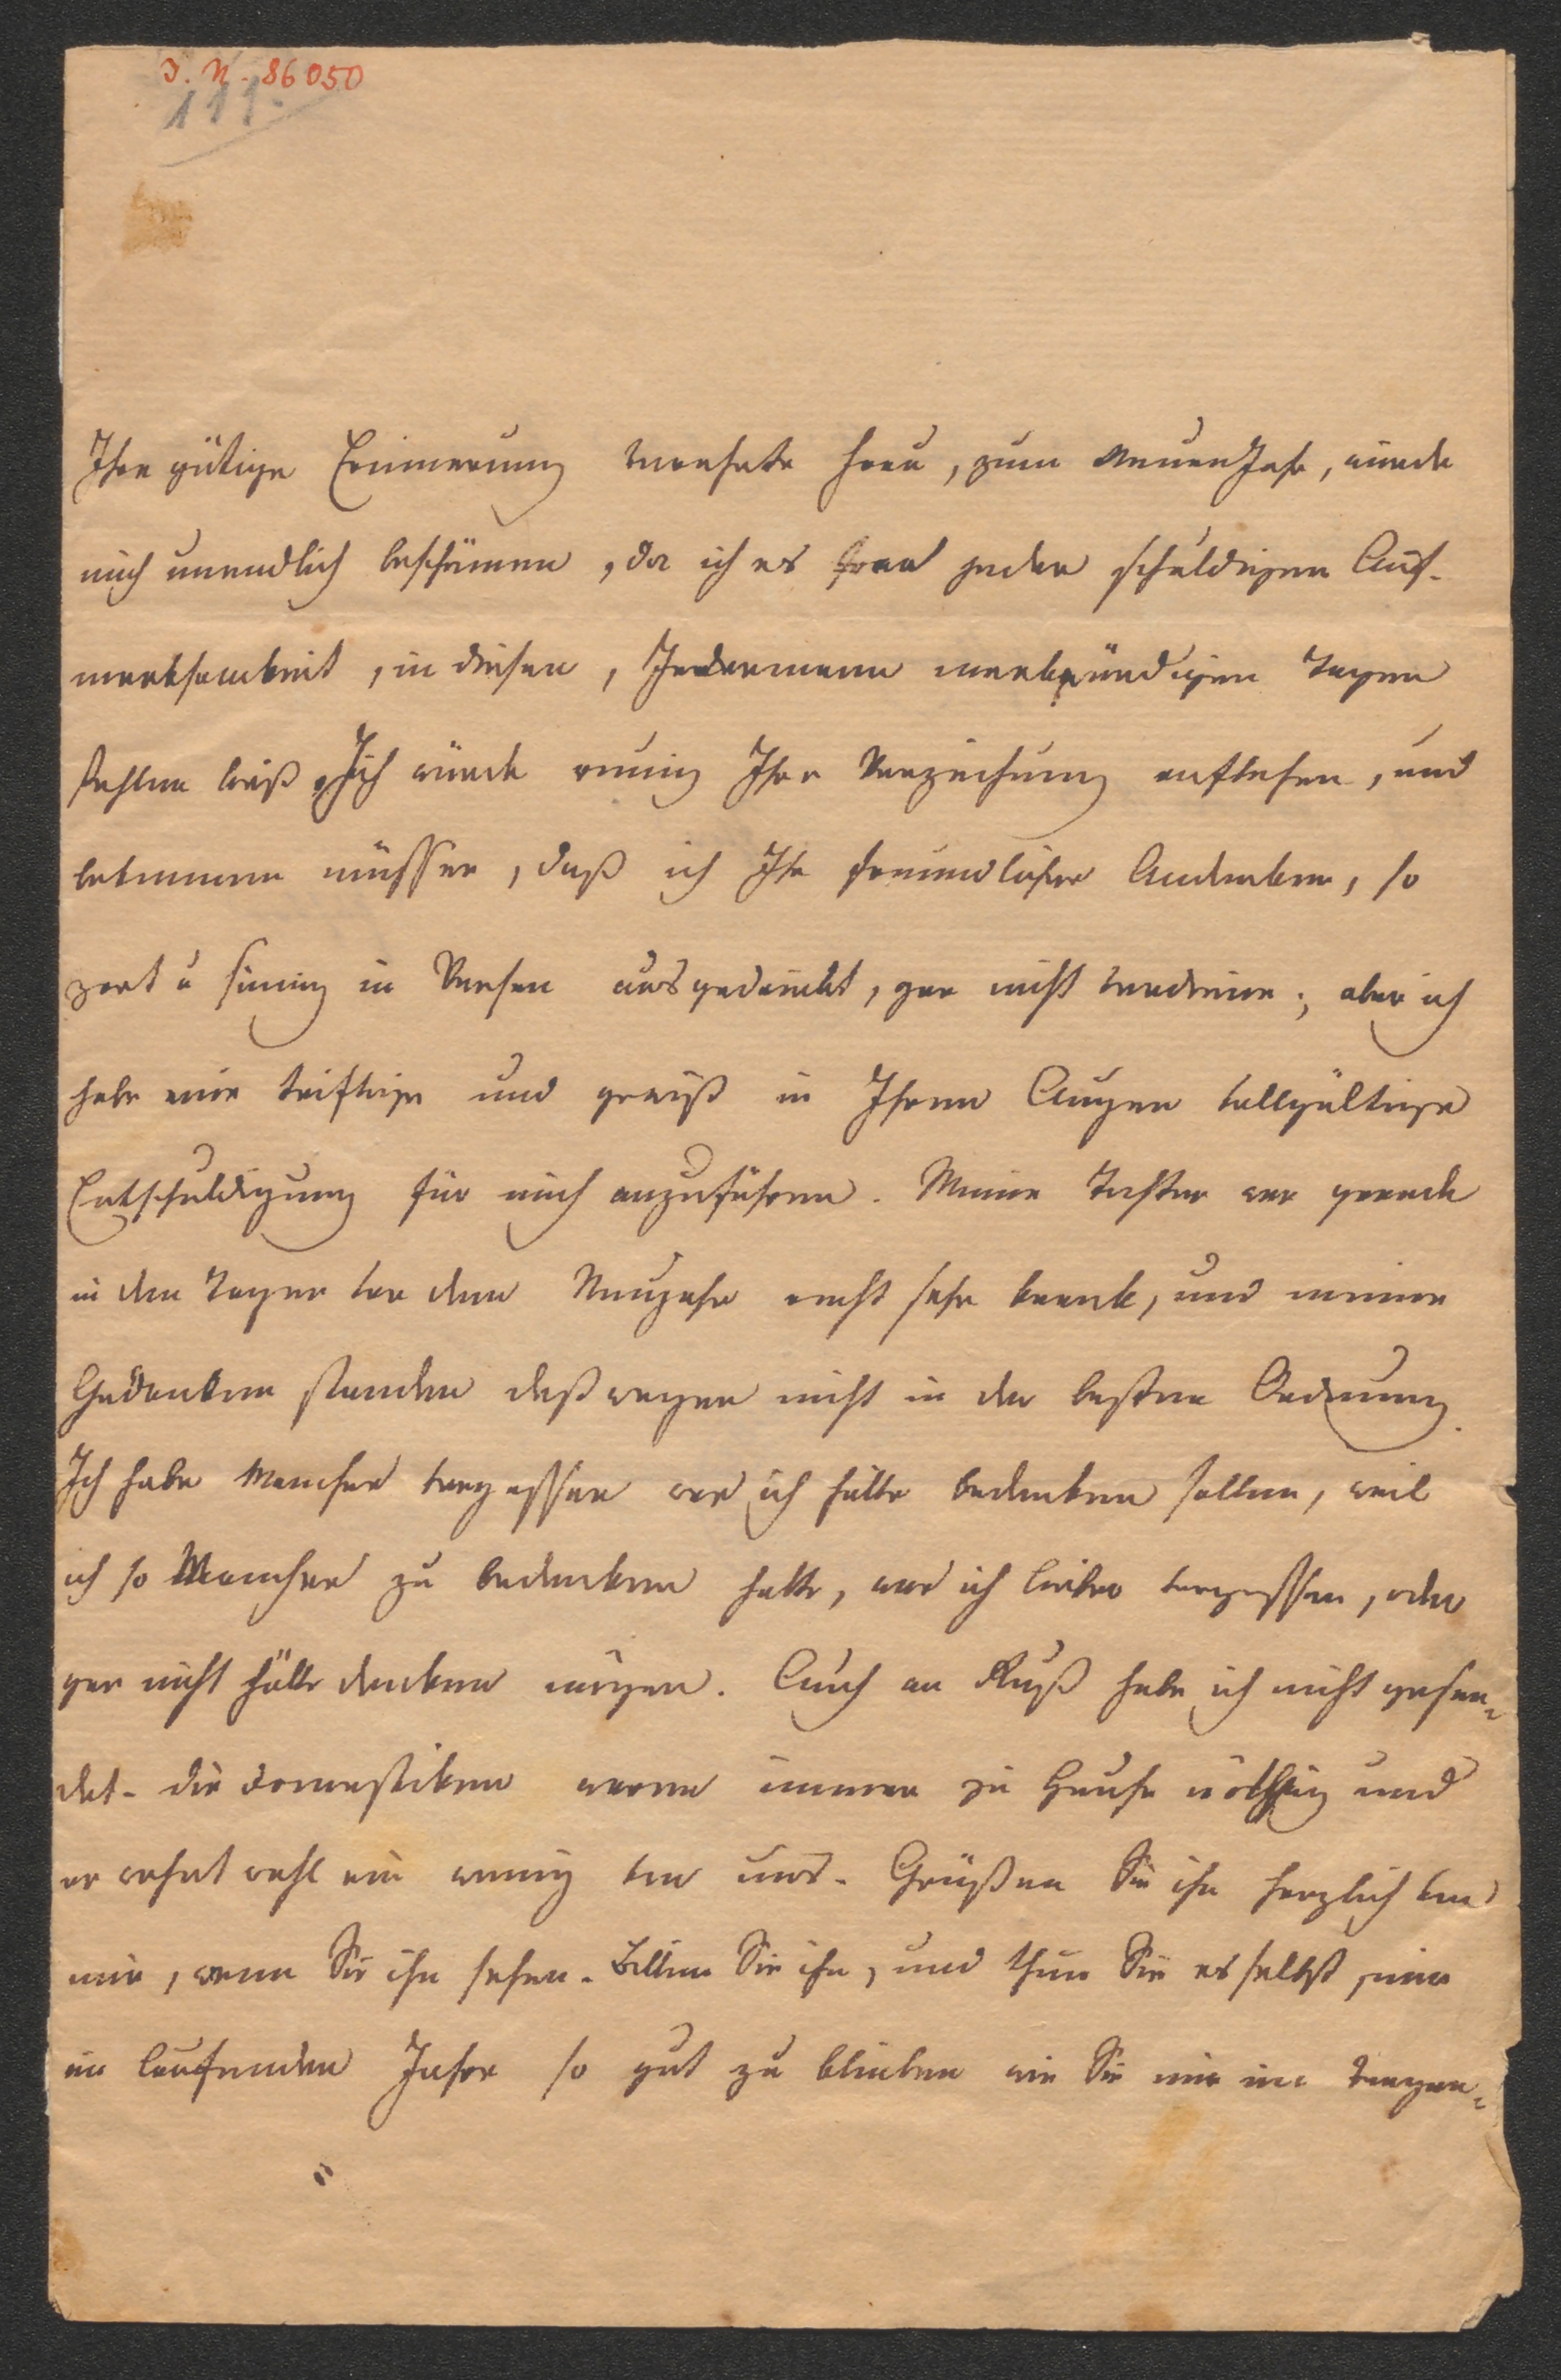 I. N. 86050
111.
Ihre gütige Erinnerung verehrte Frau, zum neuen Jahr, würde
mich unendlich beschämen, da ich es an jeder schuldigen Auf-
merksamkeit, in diesen, Jedermann merkwürdigen Tagen
fehlen ließ. Ich würde reuig Ihre Verzeihung anflehen, und
bekennen müssen, daß ich Ihr freundliches Andenken, so
zart u sinnig in Versen ausgedrückt, gar nicht verdiene; aber ich
habe eine triftige und gewiß in Ihren Augen vollgültige
Entschuldigung für mich anzuführen. Meine Tochter war gerade
in den Tagen vor dem Neujahr recht sehr krank, und meine
Gedanken standen deßwegen nicht in der besten Ordnung.
Ich habe Manches vergessen was ich hätte bedenken sollen, weil
ich so Manches zu bedenken hatte, was ich lieber vergessen, oder
gar nicht hätte denken mögen. Auch an Ruß habe ich nicht gesen-
det. die Domestiken waren immer zu Hause nöthig und
er wohnt wohl ein wenig von uns. Grüßen Sie ihn herzlich von
mir, wenn Sie ihn sehen. Bitten Sie ihn, und thun Sie es selbst, mir
im laufenden Jahre so gut zu bleiben wie Sie mir im vergan-